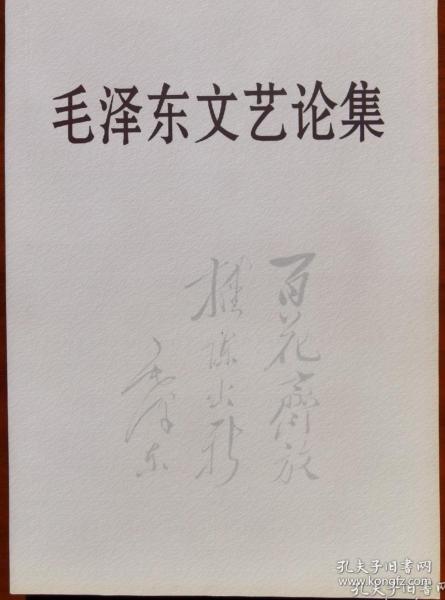 毛泽东文艺论集
百花齊放
推陈出新
毛泽东
孔夫子旧书网
kongfz.com
孔夫子旧书网